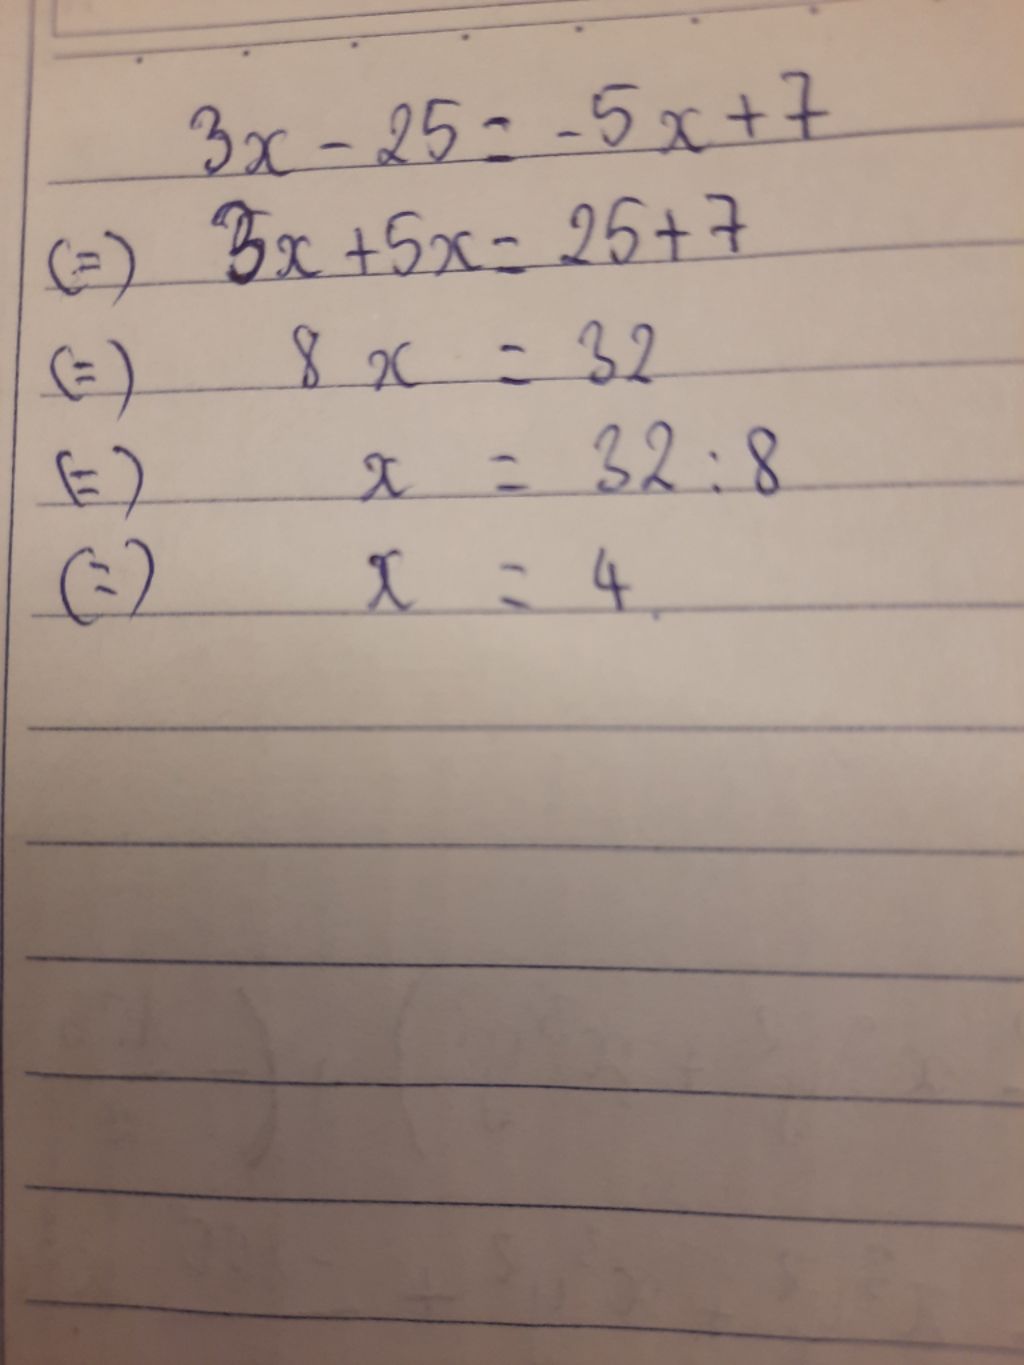 3x - 25 = -5x + 7
(=) 3x + 5x = 25 + 7
(=) 8x = 32
(=) x = 32 : 8
(=) x = 4.